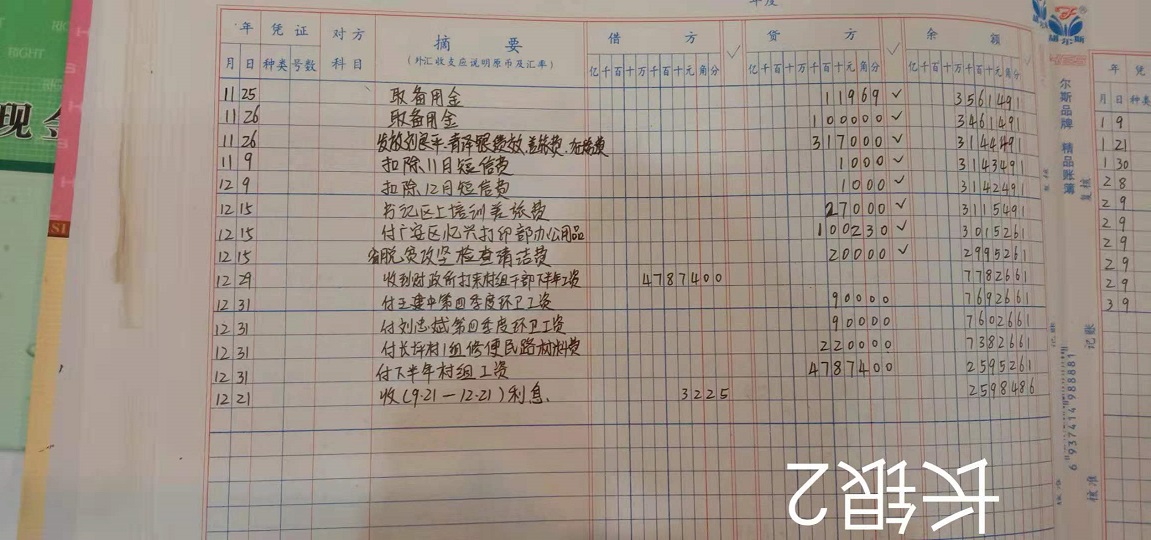 年度
年 凭证 对方 摘要 借方 √ 贷方 √ 余额 √
月 日 种类 号数 科目 (外汇收支应说明原币及汇率) 亿千百十万千百十元角分 亿千百十万千百十元角分 亿千百十万千百十元角分
11 25 取备用金 11969 √ 3561491
11 26 取备用金 100000 √ 3461491
11 26 317000 √ 3144491
11 9 扣除11月短信费 1000 √ 3143491
12 9 扣除12月短信费 1000 √ 3142491
12 15 书记区上培训差旅费 27000 √ 3115491
12 15 付广安区忆兴打印部办公用品 100230 √ 3015261
12 15 省脱贫攻坚检查清洁费 20000 √ 2995261
12 29 收到财政所打来村组干部下半年工资 4787400 7782661
12 31 付王建中第四季度环卫工资 90000 7692661
12 31 付刘志斌第四季度环卫工资 90000 7602661
12 31 付长坪村1组修便民路材料费 220000 7382661
12 31 付下半年村组工资 4787400 2595261
12 21 收(9.21—12.21)利息. 3225 2598486
长银2
现金
RIGHT
RIGHT
尔斯品牌 精品账簿
6 937414 988881
复核
记账
核准
年 凭
月 日 种类
1 9
1 21
1 30
2 8
2 9
2 9
2 9
2 9
2 9
3 9